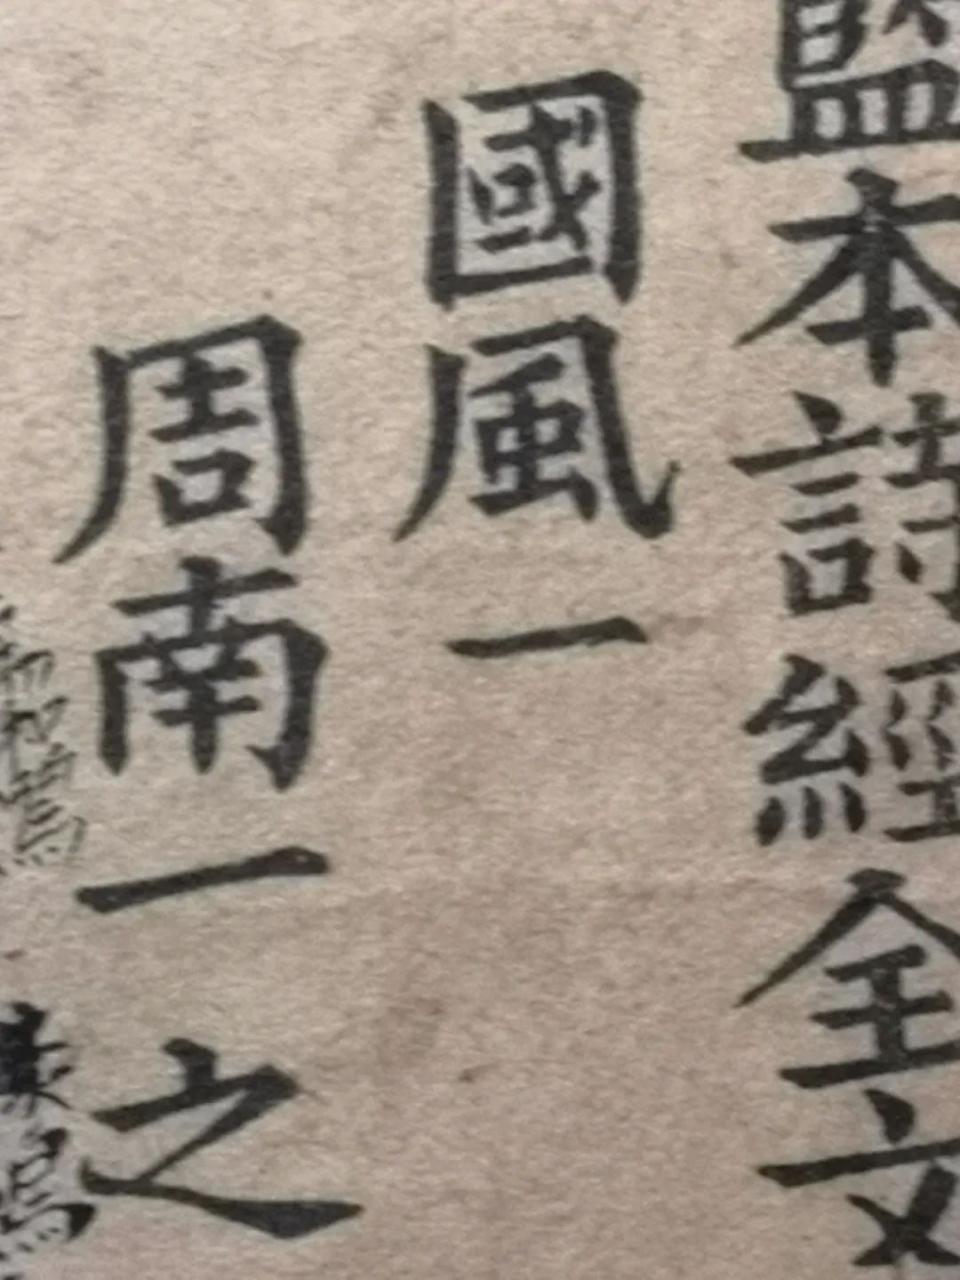 監本詩經全文
國風一
周南一之